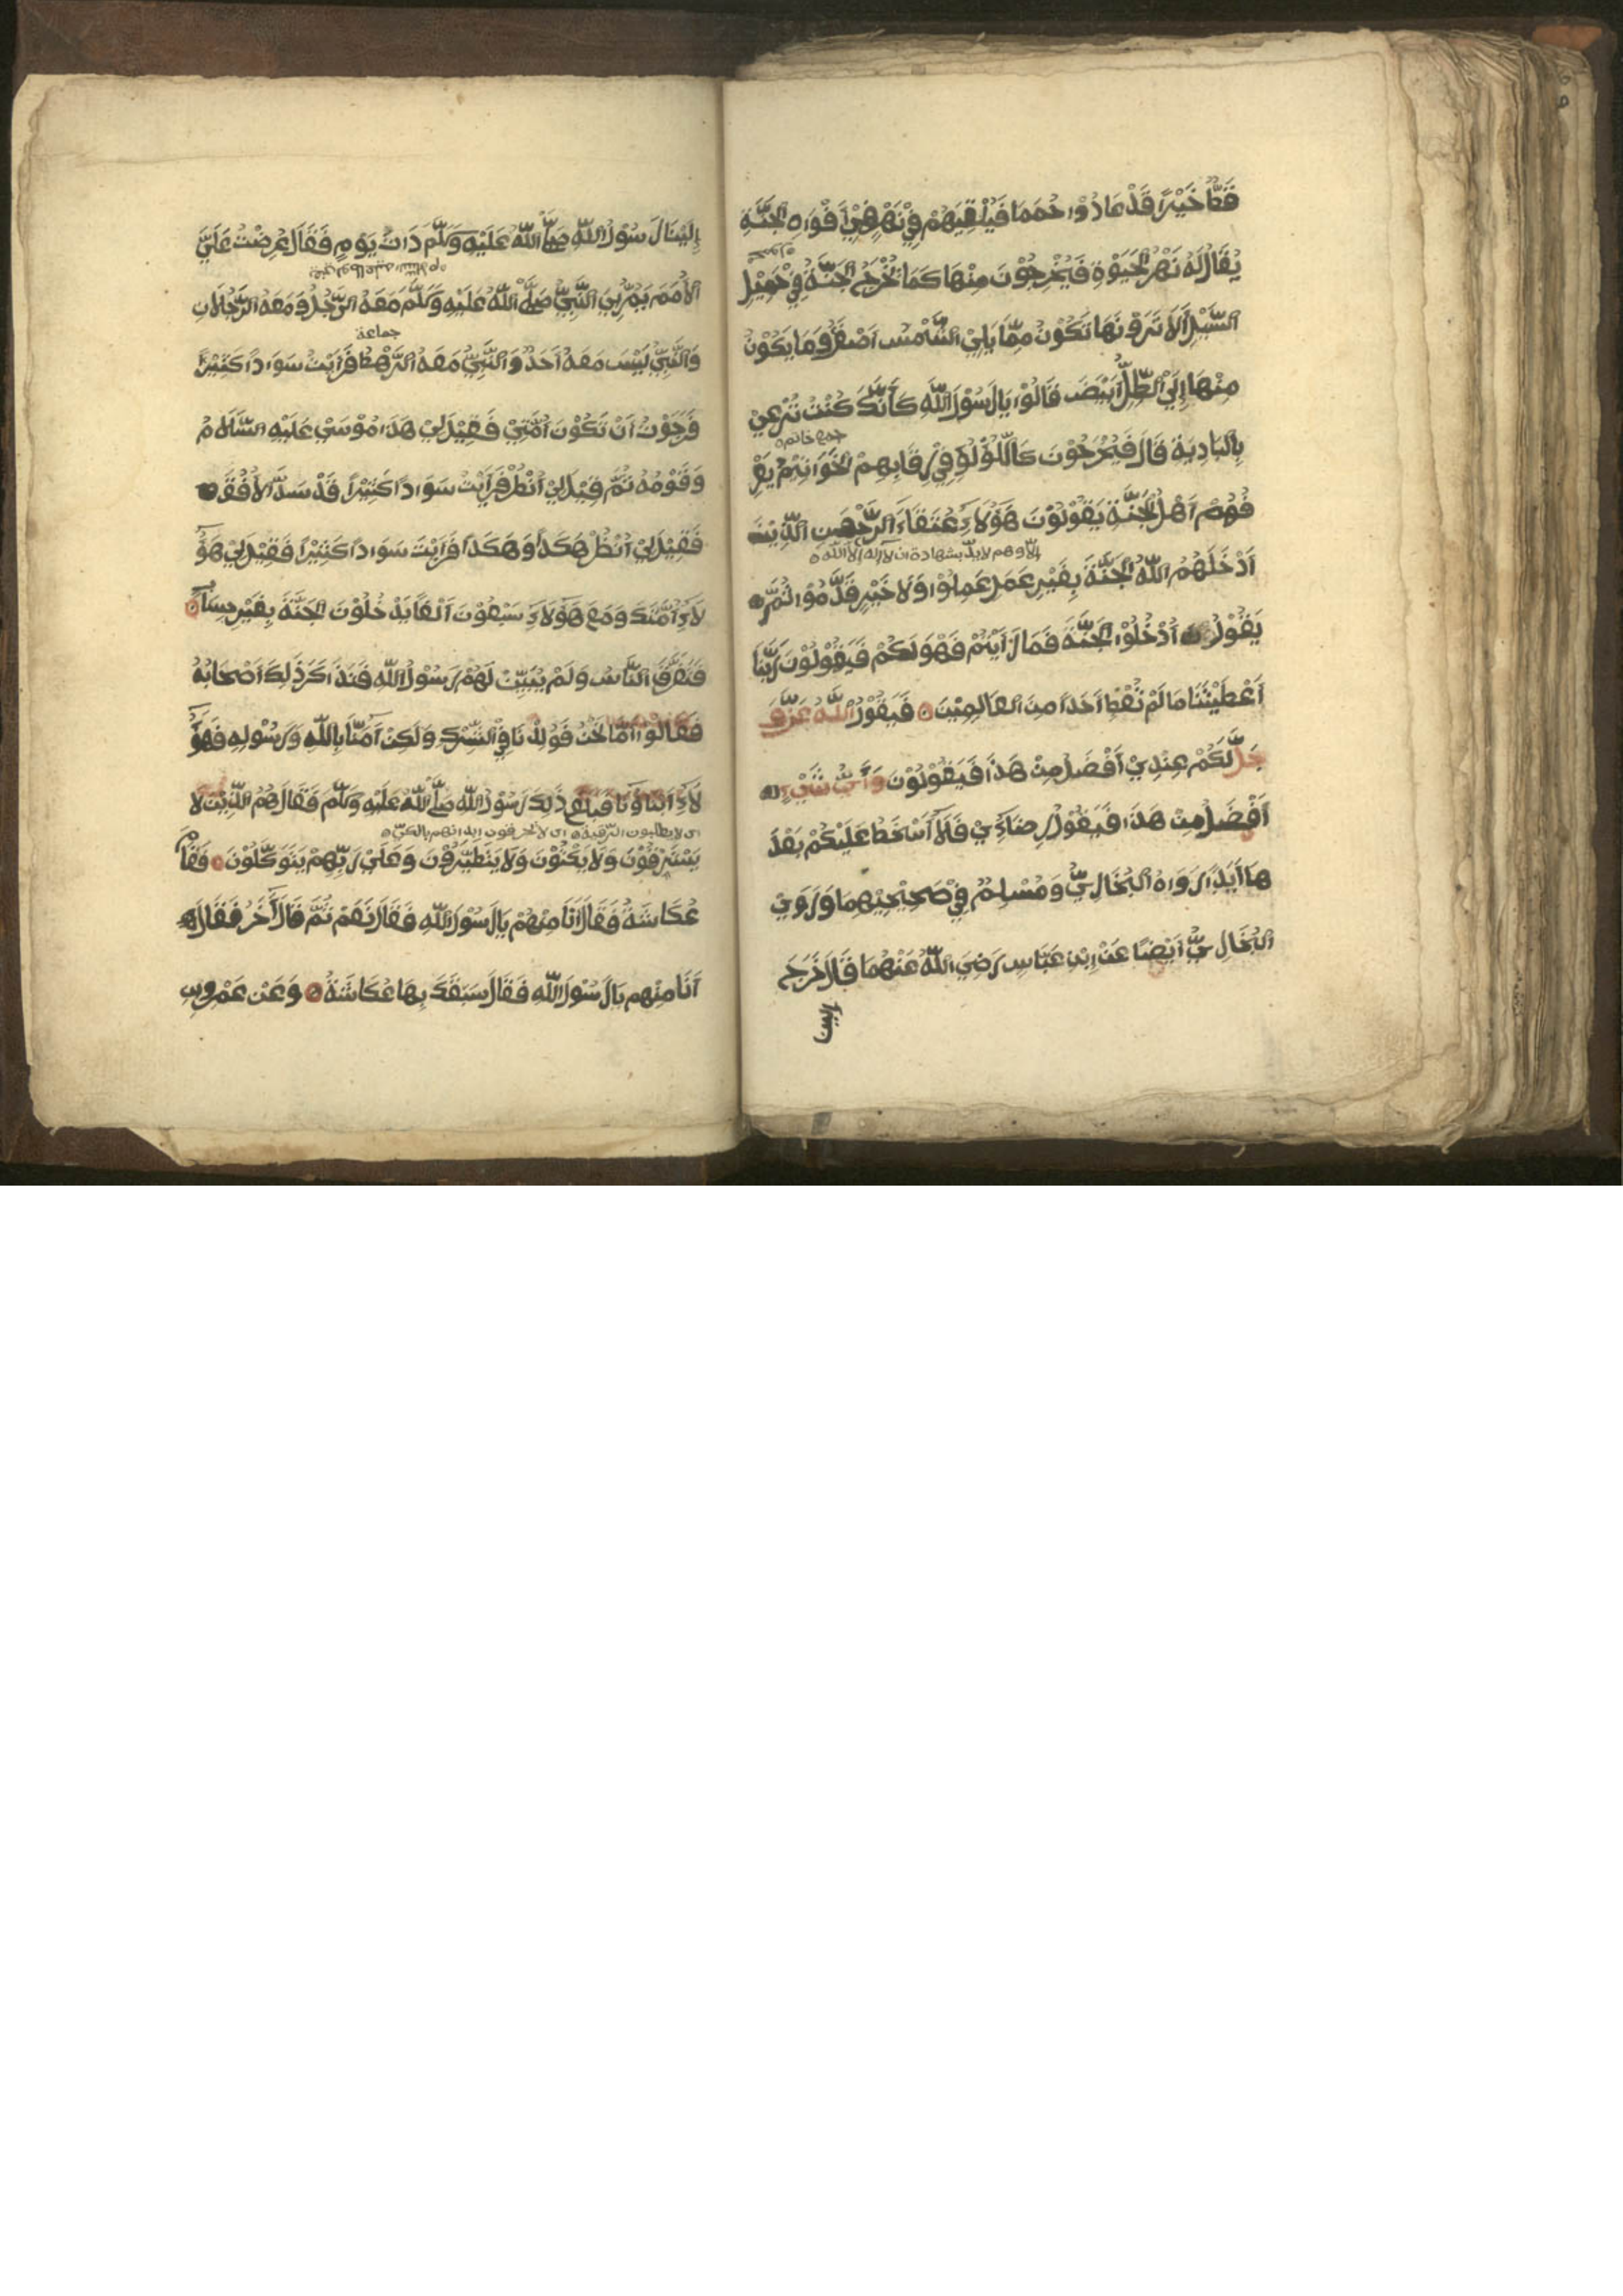 قَطُّ خَيْرًا قَدْ عَادُوْا حُمَمَا فَيُلْقِيَهُمْ فِيْ نَهْرٍ فِيْ اَفْوَاهِ الْجَنَّةِ
يُقَالُ لَهُ نَهْرُ الْحَيَوٰةِ فَيُخْرِجُوْنَ مِنْهَا كَمَا تُخْرَجُ الْحِبَّةُ فِيْ حَمِيْلِ
السَّيْلِ اَلَا تَرَوْنَهَا تَكُوْنُ مِمَّا يَلِيْ الشَّمْسَ اَصْفَرُ وَمَا يَكُوْنُ
مِنْهَا اِلَيْ الظِّلِّ اَبْيَضَ قَالُوْا يَارَسُوْلَ اللّٰهِ كَاَنَّكَ كُنْتَ تَرْعِيْ
جمع خاتم
بِالْبَادِيَةِ قَالَ فَيَخْرُجُوْنَ كَاللُّؤْلُؤِ فِيْ رِقَابِهِمْ الْخَوَاتِيْمُ يَعْرِ
فُهُمْ اَهْلُ الْجَنَّةِ يَقُوْلُوْنَ هَؤُلَاءِ عُتَقَاءُ الرَّحْمٰنِ الَّذِيْنَ
الا وهم لا بد بشهادة ان لا اله الا الله
اَدْخَلَهُمُ اللّٰهُ الْجَنَّةَ بِغَيْرِ عَمَلٍ عَمِلُوْا وَلَا خَيْرٍ قَدَّمُوْا ثُمَّ
يَقُوْلُ اُدْخُلُوْا الْجَنَّةَ فَمَا رَاَيْتُمْ فَهُوَ لَكُمْ فَيَقُوْلُوْنَ رَبَّنَا
اَعْطَيْتَنَا مَا لَمْ تُعْطِ اَحَدًا مِنَ الْعَالَمِيْنَ فَيَقُوْلُ اللّٰهُ عَزَّ وَ
جَلَّ لَكُمْ عِنْدِيْ اَفْضَلُ مِنْ هَذَا فَيَقُوْلُوْنَ وَاَيُّ شَيْءٍ
اَفْضَلُ مِنْ هَذَا فَيَقُوْلُ رِضَاءِيْ فَلَا اَسْخَطُ عَلَيْكُمْ بَعْدَ
هَا اَبَدًا رَوَاهُ الْبُخَارِيُّ وَمُسْلِمٌ فِيْ صَحِيْحَيْهِمَا وَرَوَيْ
الْبُخَارِيُّ اَيْضًا عَنْ اِبْنِ عَبَّاسٍ رَضِيَ اللّٰهُ عَنْهُمَا قَالَ خَرَجَ
الينا
اِلَيْنَا رَسُوْلُ اللّٰهِ صَلَّى اللّٰهُ عَلَيْهِ وَسَلَّمَ ذَاتَ يَوْمٍ فَقَالَ عُرِضَتْ عَلَيَّ
الْاُمَمُ يَمُرُّ بِيَ النَّبِيُّ صَلَّى اللّٰهُ عَلَيْهِ وَسَلَّمَ مَعَهُ الرَّجُلُ وَمَعَهُ الرَّجُلَانِ
جماعة
وَالنَّبِيُّ لَيْسَ مَعَهُ اَحَدٌ وَالنَّبِيُّ مَعَهُ الرَّهْطُ فَرَاَيْتُ سَوَادًا كَثِيْرًا
فَرَجَوْتُ اَنْ تَكُوْنَ اُمَّتِيْ فَقِيْلَ لِيْ هَذَا مُوْسَيْ عَلَيْهِ السَّلَامُ
وَقَوْمُهُ ثُمَّ قِيْلَ لِيْ اُنْظُرْ فَرَاَيْتُ سَوَادًا كَثِيْرًا قَدْ سَدَّ الْاُفُقَ
فَقِيْلَ لِيْ اُنْظُرْ هَكَذَا وَهَكَذَا فَرَاَيْتُ سَوَادًا كَثِيْرًا فَقِيْلَ لِيْ هَؤُ
لَاءِ اُمَّتُكَ وَمَعَ هَؤُلَاءِ سَبْعُوْنَ اَلْفًا يَدْخُلُوْنَ الْجَنَّةَ بِغَيْرِ حِسَابٍ
فَتَفَرَّقَ النَّاسُ وَلَمْ يُبَيِّنْ لَهُمْ رَسُوْلُ اللّٰهِ فَتَذَاكَرَ ذٰلِكَ اَصْحَابُهُ
فَقَالُوْا اَمَّا نَحْنُ فَوُلِدْنَا فِيْ الشِّرْكِ وَلَكِنْ اٰمَنَّا بِاللّٰهِ وَرَسُوْلِهِ فَهَؤُ
لَاءِ اَبْنَاؤُنَا فَبَلَغَ ذَلِكَ رَسُوْلَ اللّٰهِ صَلَّى اللّٰهُ عَلَيْهِ وَسَلَّمَ فَقَالَ هُمُ الَّذِيْنَ لَا
اى لا يطلبون الرقية اى لا يحرقون ابدانهم بالكي
يَسْتَرْقُوْنَ وَلَا يَكْتَوُوْنَ وَلَا يَتَطَيَّرُوْنَ وَعَلَيْ رَبِّهِمْ يَتَوَكَّلُوْنَ فَقَامَ
عُكَاشَةُ فَقَالَ اَنَا مِنْهُمْ يَارَسُوْلَ اللّٰهِ فَقَالَ نَعَمْ ثُمَّ قَالَ اٰخَرُ فَقَالَ
اَنَا مِنْهُمْ يَارَسُوْلَ اللّٰهِ فَقَالَ سَبَقَكَ بِهَا عُكَاشَةُ وَعَنْ عَمْرِو بْنِ